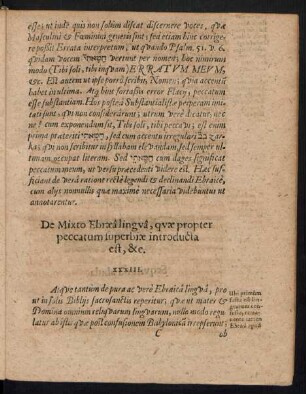 esse; ut inde quis non solùm discat discernere voces, quæ
Masculini & Fœminini generis sint; sed etiam hinc corrige-
re possit Errata interpretum, ut quando Psalm. 51. v. 6.
quidam vocem חטאתי vertunt per nomen; hoc nimirum
modo (Tibi soli, tibi inquam) ERRATUM MEUM,
&c. Est autem ut ipse
habet in ultima. Atq; hinc forsassis error Flacij, peccatum
esse substantiam. Hos postea Substantialistæ perperam imi-
tati sunt, qui non considerarunt; utrum verè dicatur, nec
ne? cum exponendum sit, Tibi soli, tibi peccavi; est enim
prima præteriti חטאתי, sed cum accentu irregulari
quis, qui non scribitur in syllabam elevandam, sed semper ul-
timam occupat literam. Sed חטאתי cum dages significat
peccatum meum, ut versu præcedenti videre est. Hæc suf-
ficiant de vera ratione rectè legendi & declinandi Ebraicè,
cum aliys nonnullis quæ maximè necessaria videbantur ut
annotarentur.
De Mixto Ebræâ linguâ, quæ propter
peccatum superbiæ introducta
est, &c.
XXXIII.
Atque tantum de pura ac verè Ebraicâ linguâ, pro
ut in solis Biblijs sacrosanctis reperitur; quæ ut mater &
Domina omnium reliquarum linguarum, nullo modo regu-
latur ab istis quæ post confusionem Babylonicâ irrepserunt;
C ob